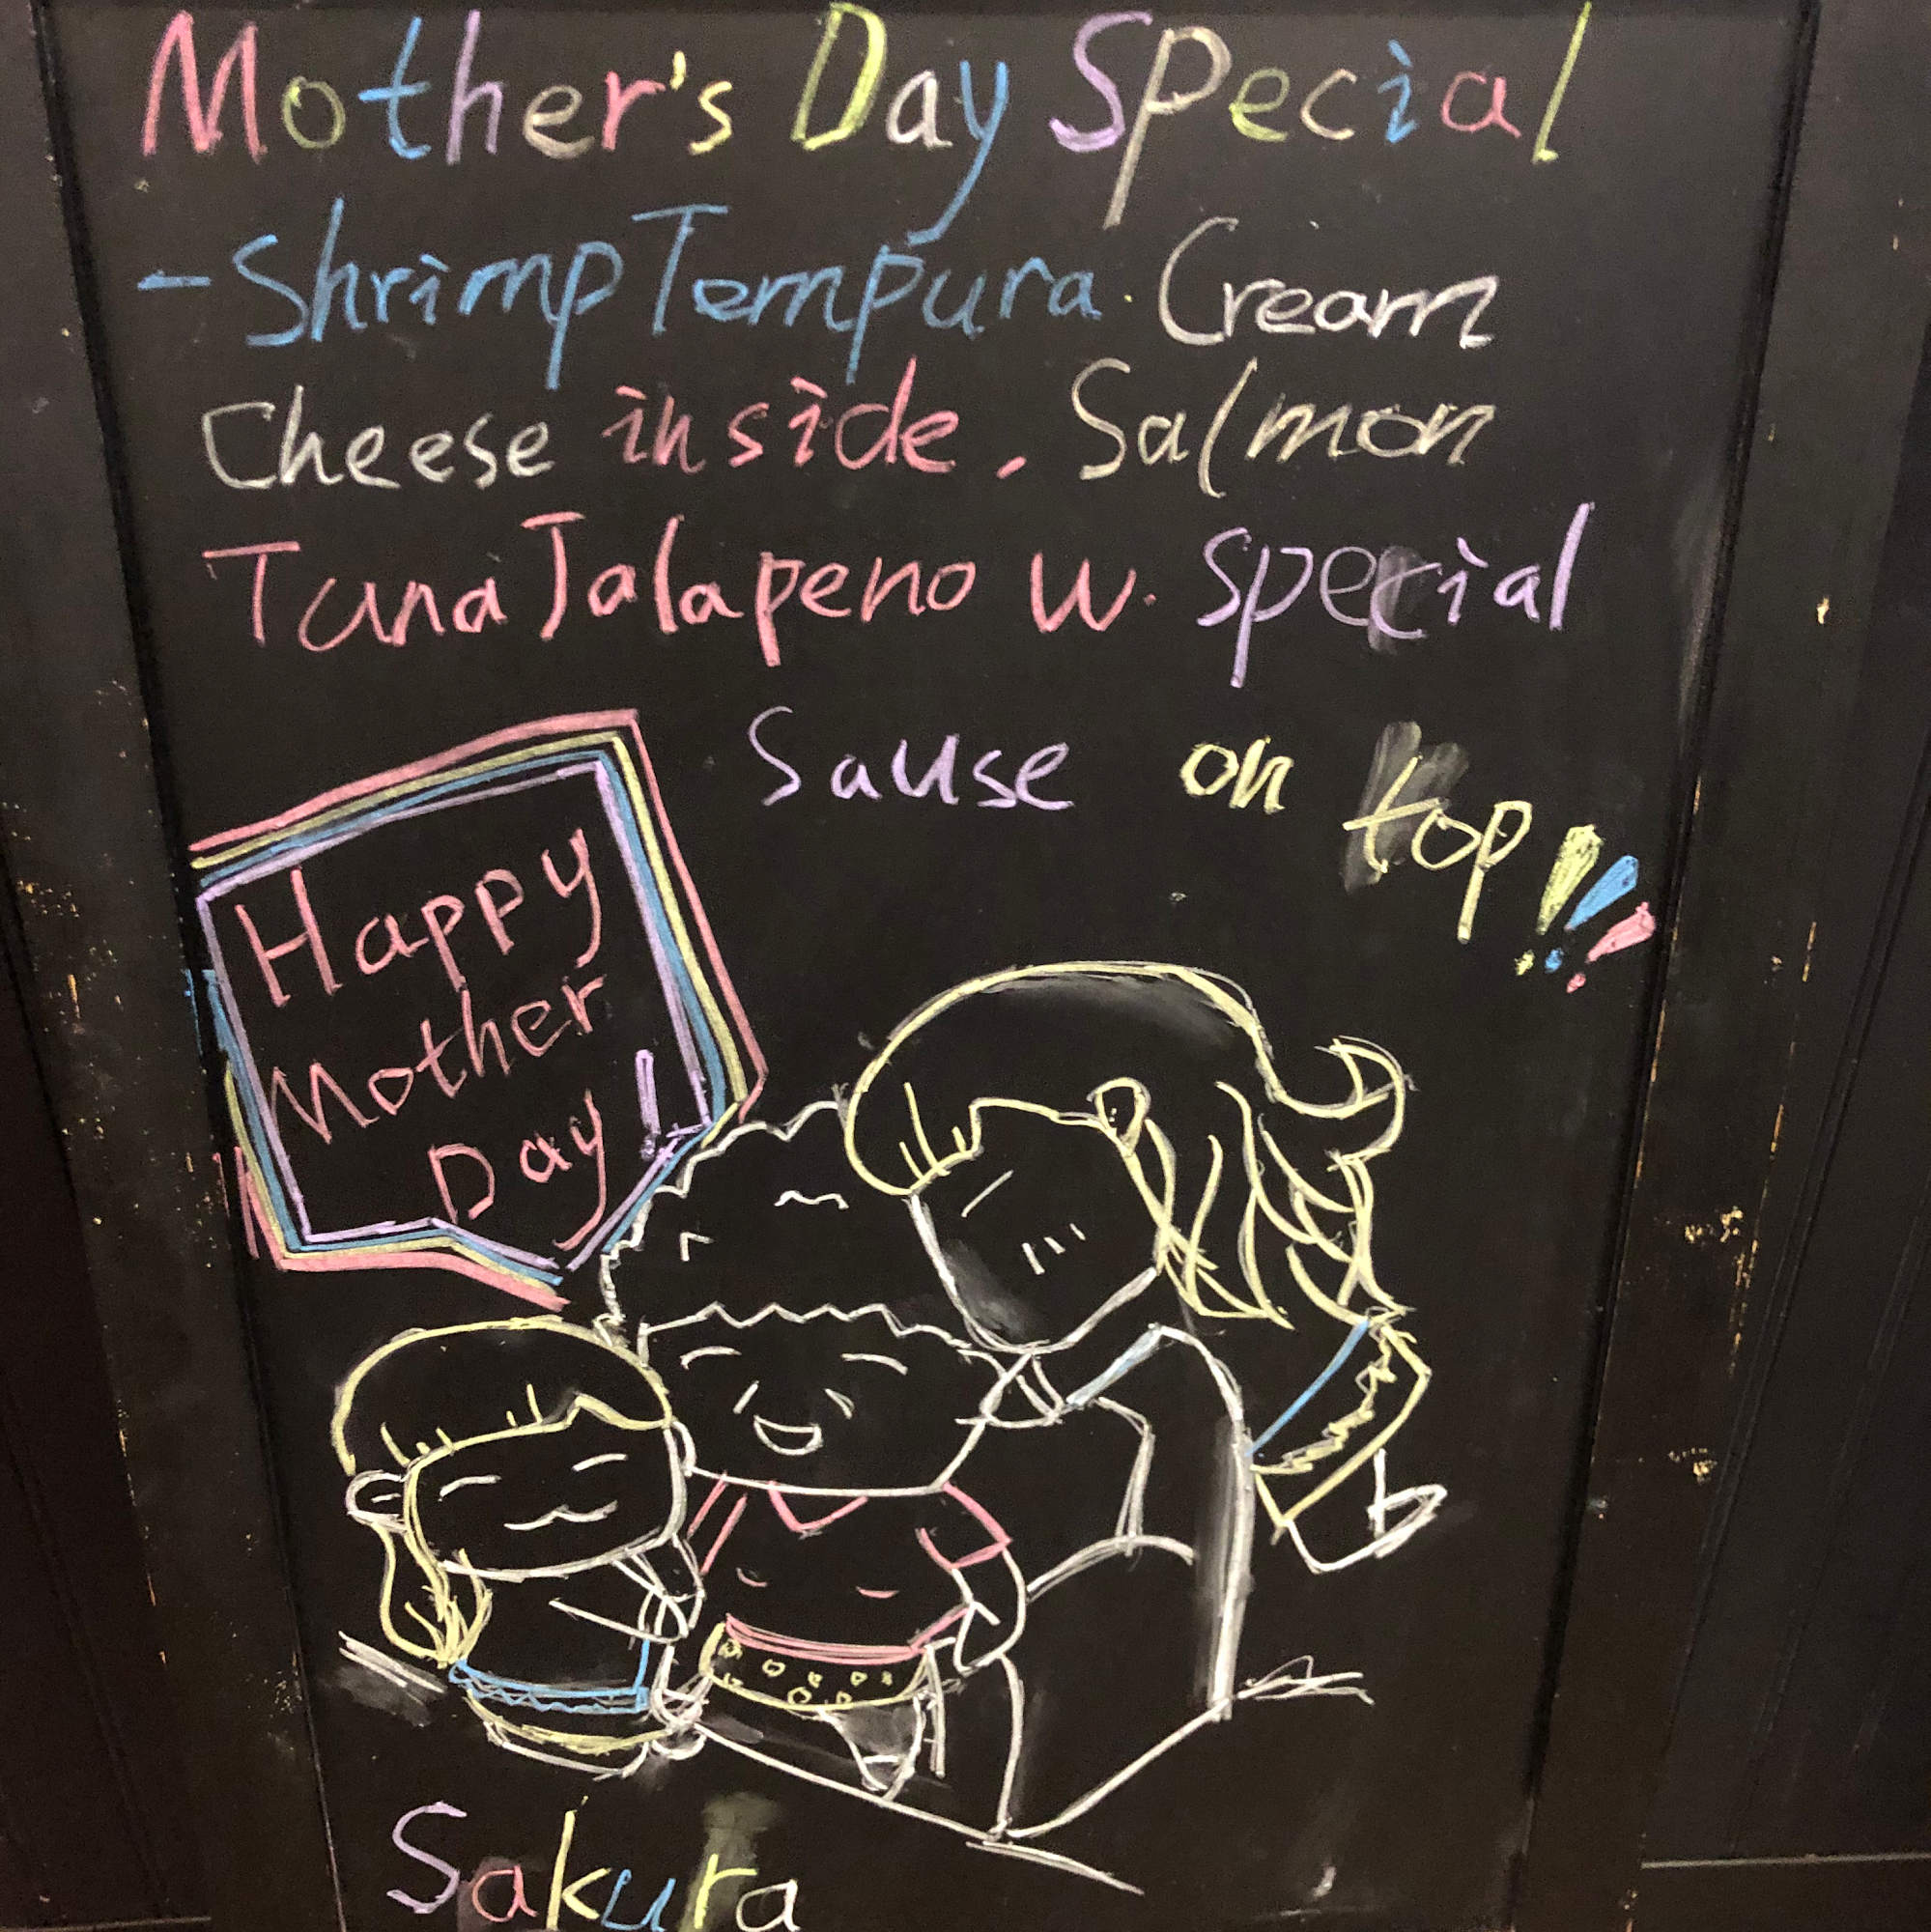 Mother's Day Special
- Shrimp Tempura. Cream
Cheese inside. Salmon
Tuna Jalapeno w. special
Sause on top!!!
Happy
Mother
Day!
Sakura